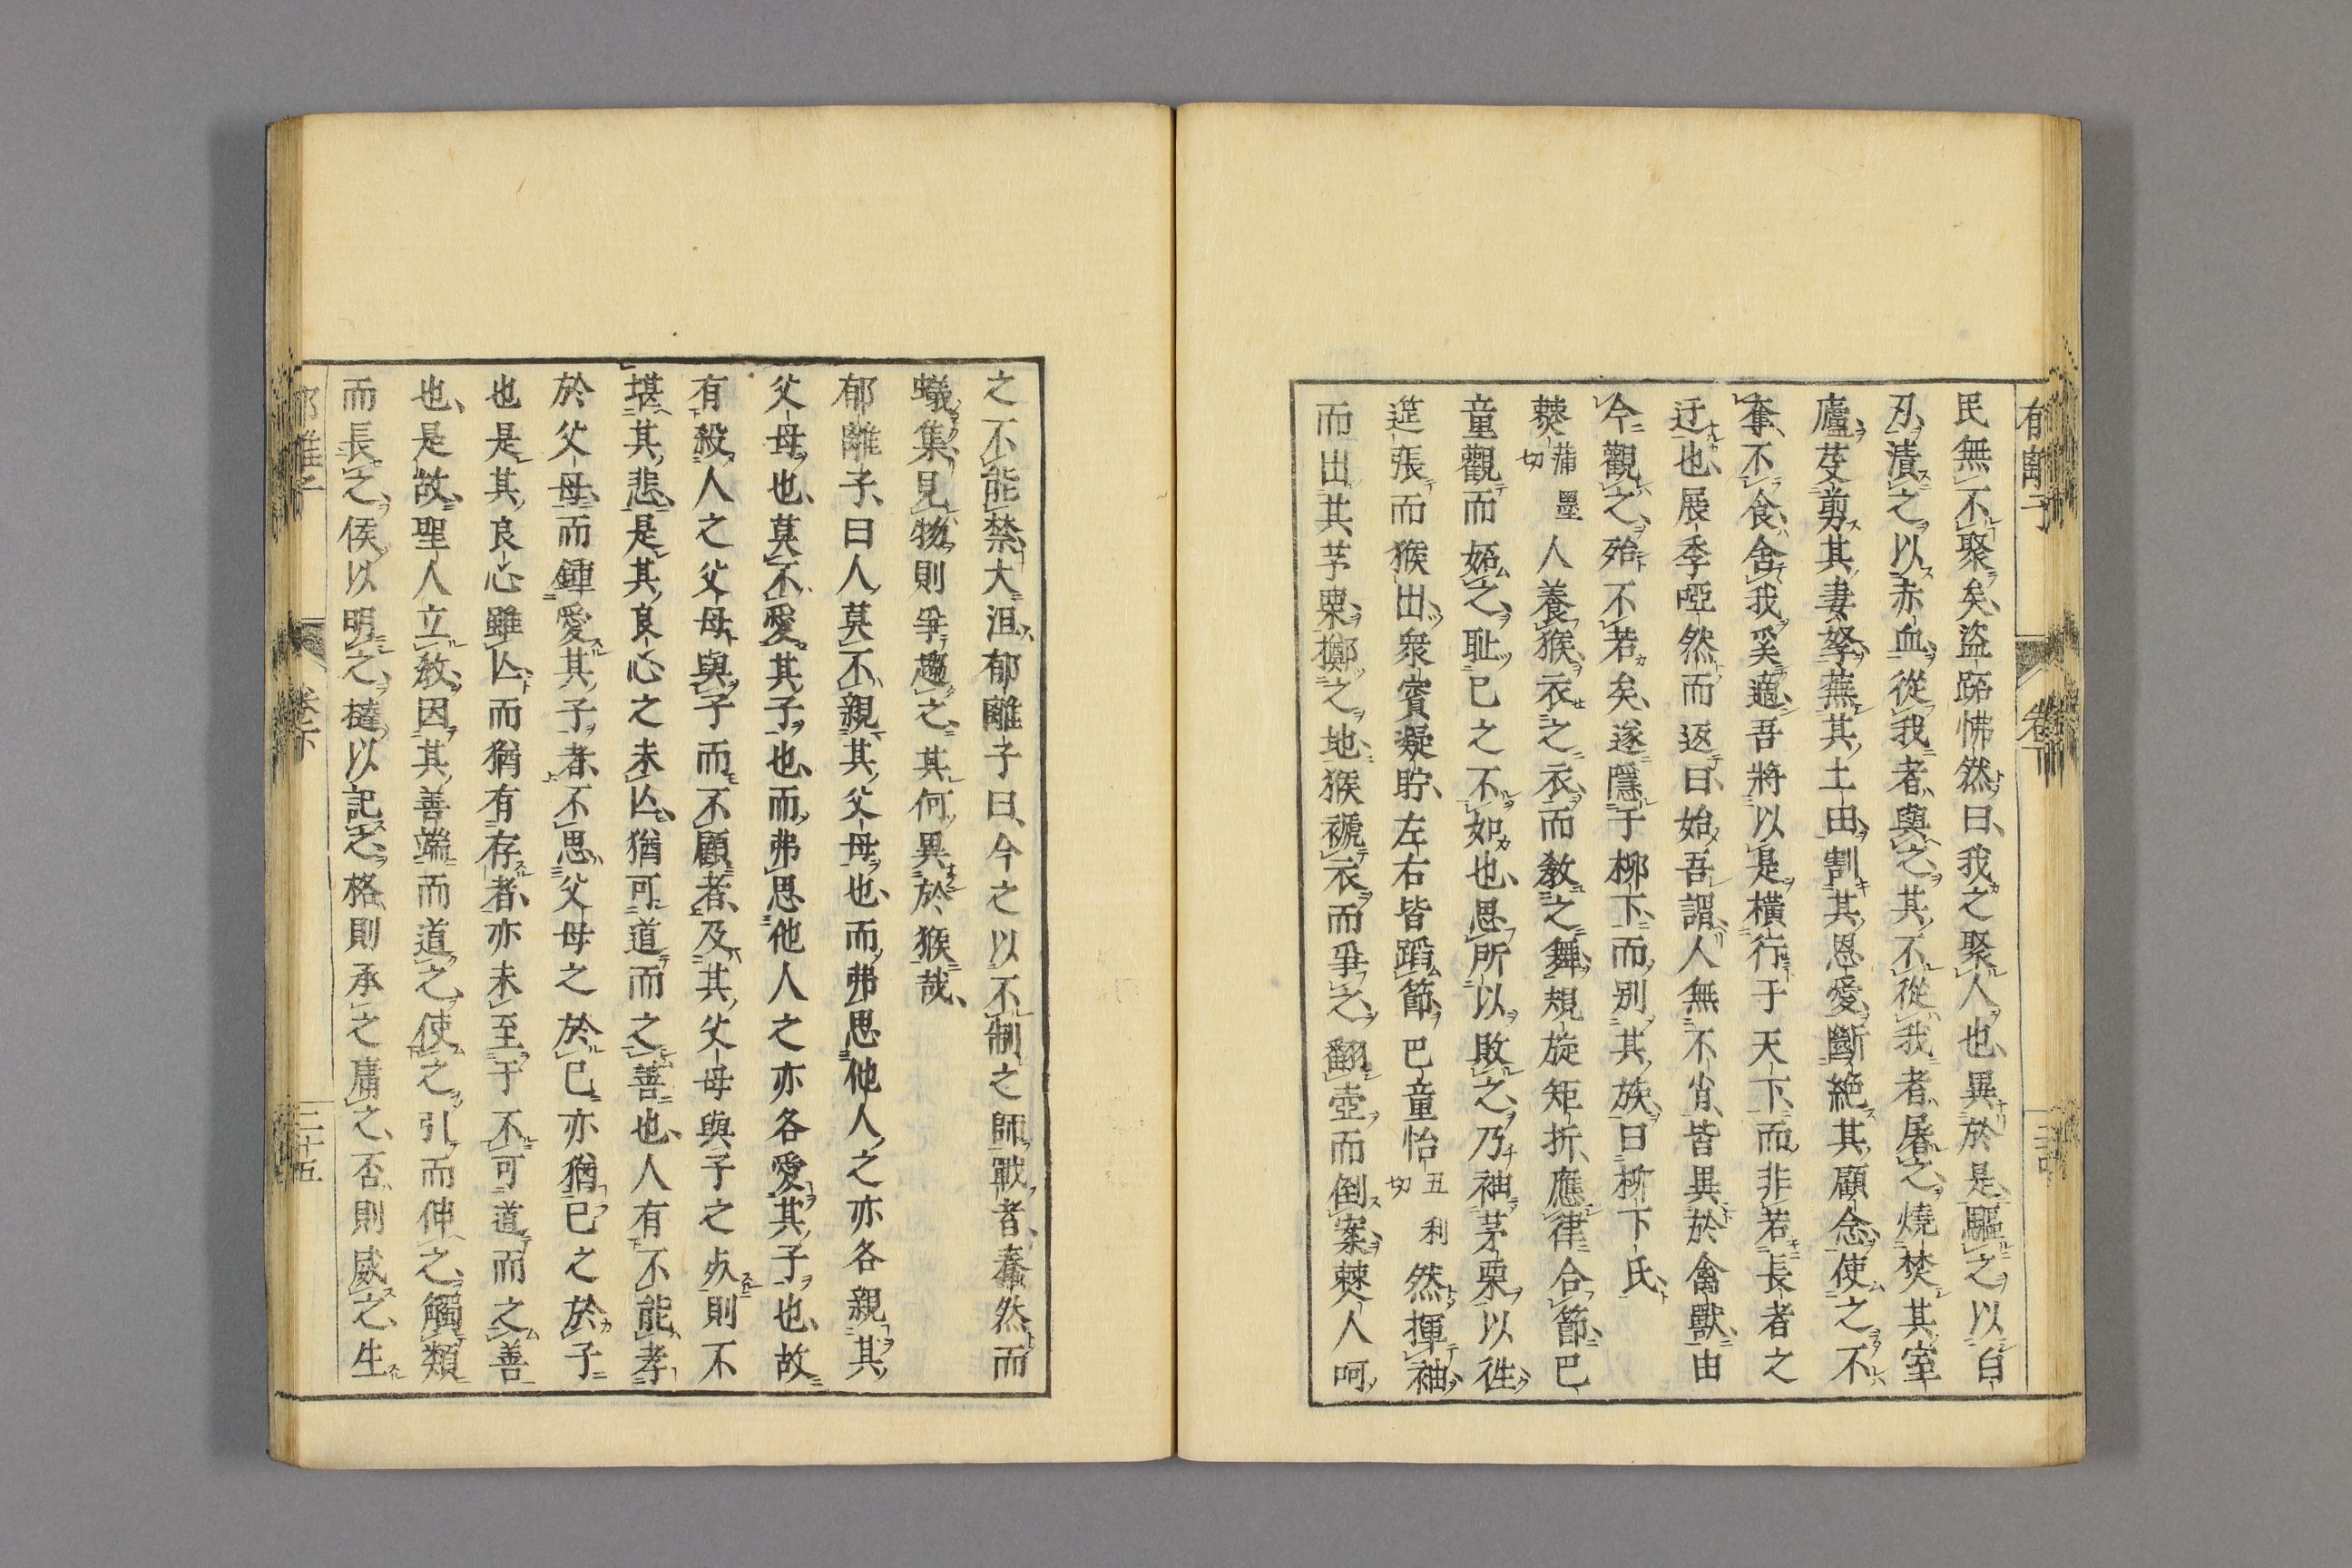 郁離子
民無不聚矣盜跖怫然曰我之聚人也異於是驅之以白
刄漬之以赤血從我者與之其不從我者屠之燒焚其室
廬芟剪其妻孥蕪其土田割其恩愛斷絶其顧念使之不
奪不食舍我奚適吾將以是横行于天下而非若長者之
迂也展季啞然而返曰始吾謂人無不肖皆異於禽獸由
今觀之殆不若矣遂隱于柳下而别其族曰柳下氏
僰蒲墨切人養猴衣之衣而教之舞規旋矩折應律合節巴
童觀而妬之耻已之不如也思所以敗之乃袖茅栗以徃
筵張而猴出衆賓凝貯左右皆蹈節巴童怡五利切然揮袖
而出其芧栗擲之地猴褫衣而爭之翻壺而倒案僰人呵
之不能禁大沮郁離子曰今之以不制之師戰者蠢然而
蟻集見物則爭趨之其何異於猴哉
郁離子曰人莫不親其父母也而弗思他人之亦各親其
父母也莫不愛其子也而弗思他人之亦各愛其子也故
有殺人之父母與子而不顧者及其父母與子之㱕則不
堪其悲是其良心之未亾猶可道而之善也人有不能孝
於父母而鍾愛其子者不思父母之於已亦猶已之於子
也是其良心雖亾而猶有存者亦未至于不可道而之善
也是故聖人立教因其善端而道之使之引而伸之觸類
而長之侯以明之撻以記之格則承之庸之否則威之生
郁離子 卷下 二十五